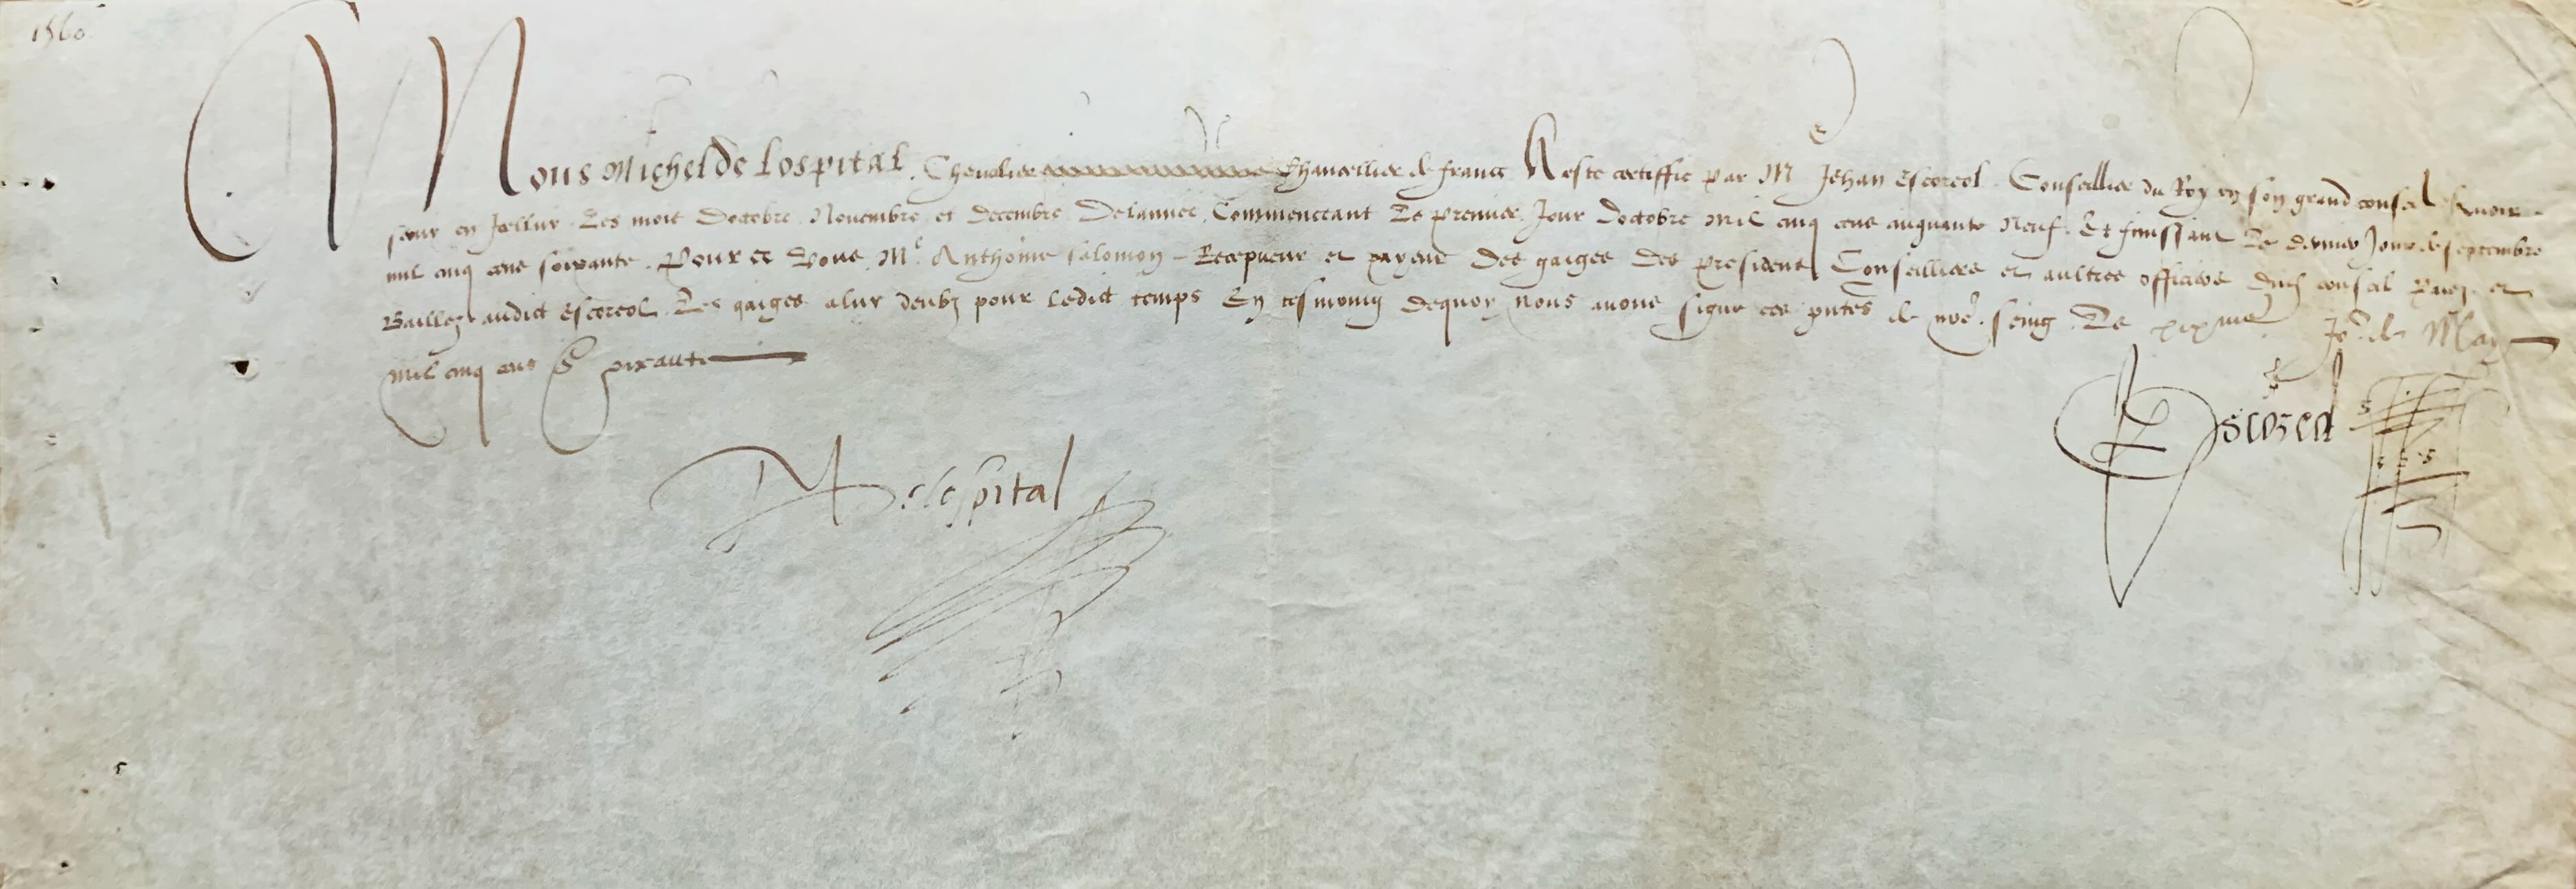 1560
Nous Michel de Lospital Chevalier Chancellier de France A este certiffie par Me Jehan Escoreol Conseillier du Roy en son grand conseil avoir
servy en Icelluy Les mois Doctobre Novembre et decembre De lannee Commenceant Le premier Jour doctobre mil cinq cens cinquante Neuf Et finissant Le dernier Jour de septembre
mil cinq cens soixante Pour ce Vous Me Anthoine Salomon Recepveur et payeur Des gaiges Des president Conseilliers et aultres officiers dud conseil Paiez et
Baillez audict Escoreol Les gaiges a luy deubz pour Ledict temps En tesmoing dequoy nous avons signe ces pntes de nre seing Le jor de May
mil cinq cens Soixante
M De lospital